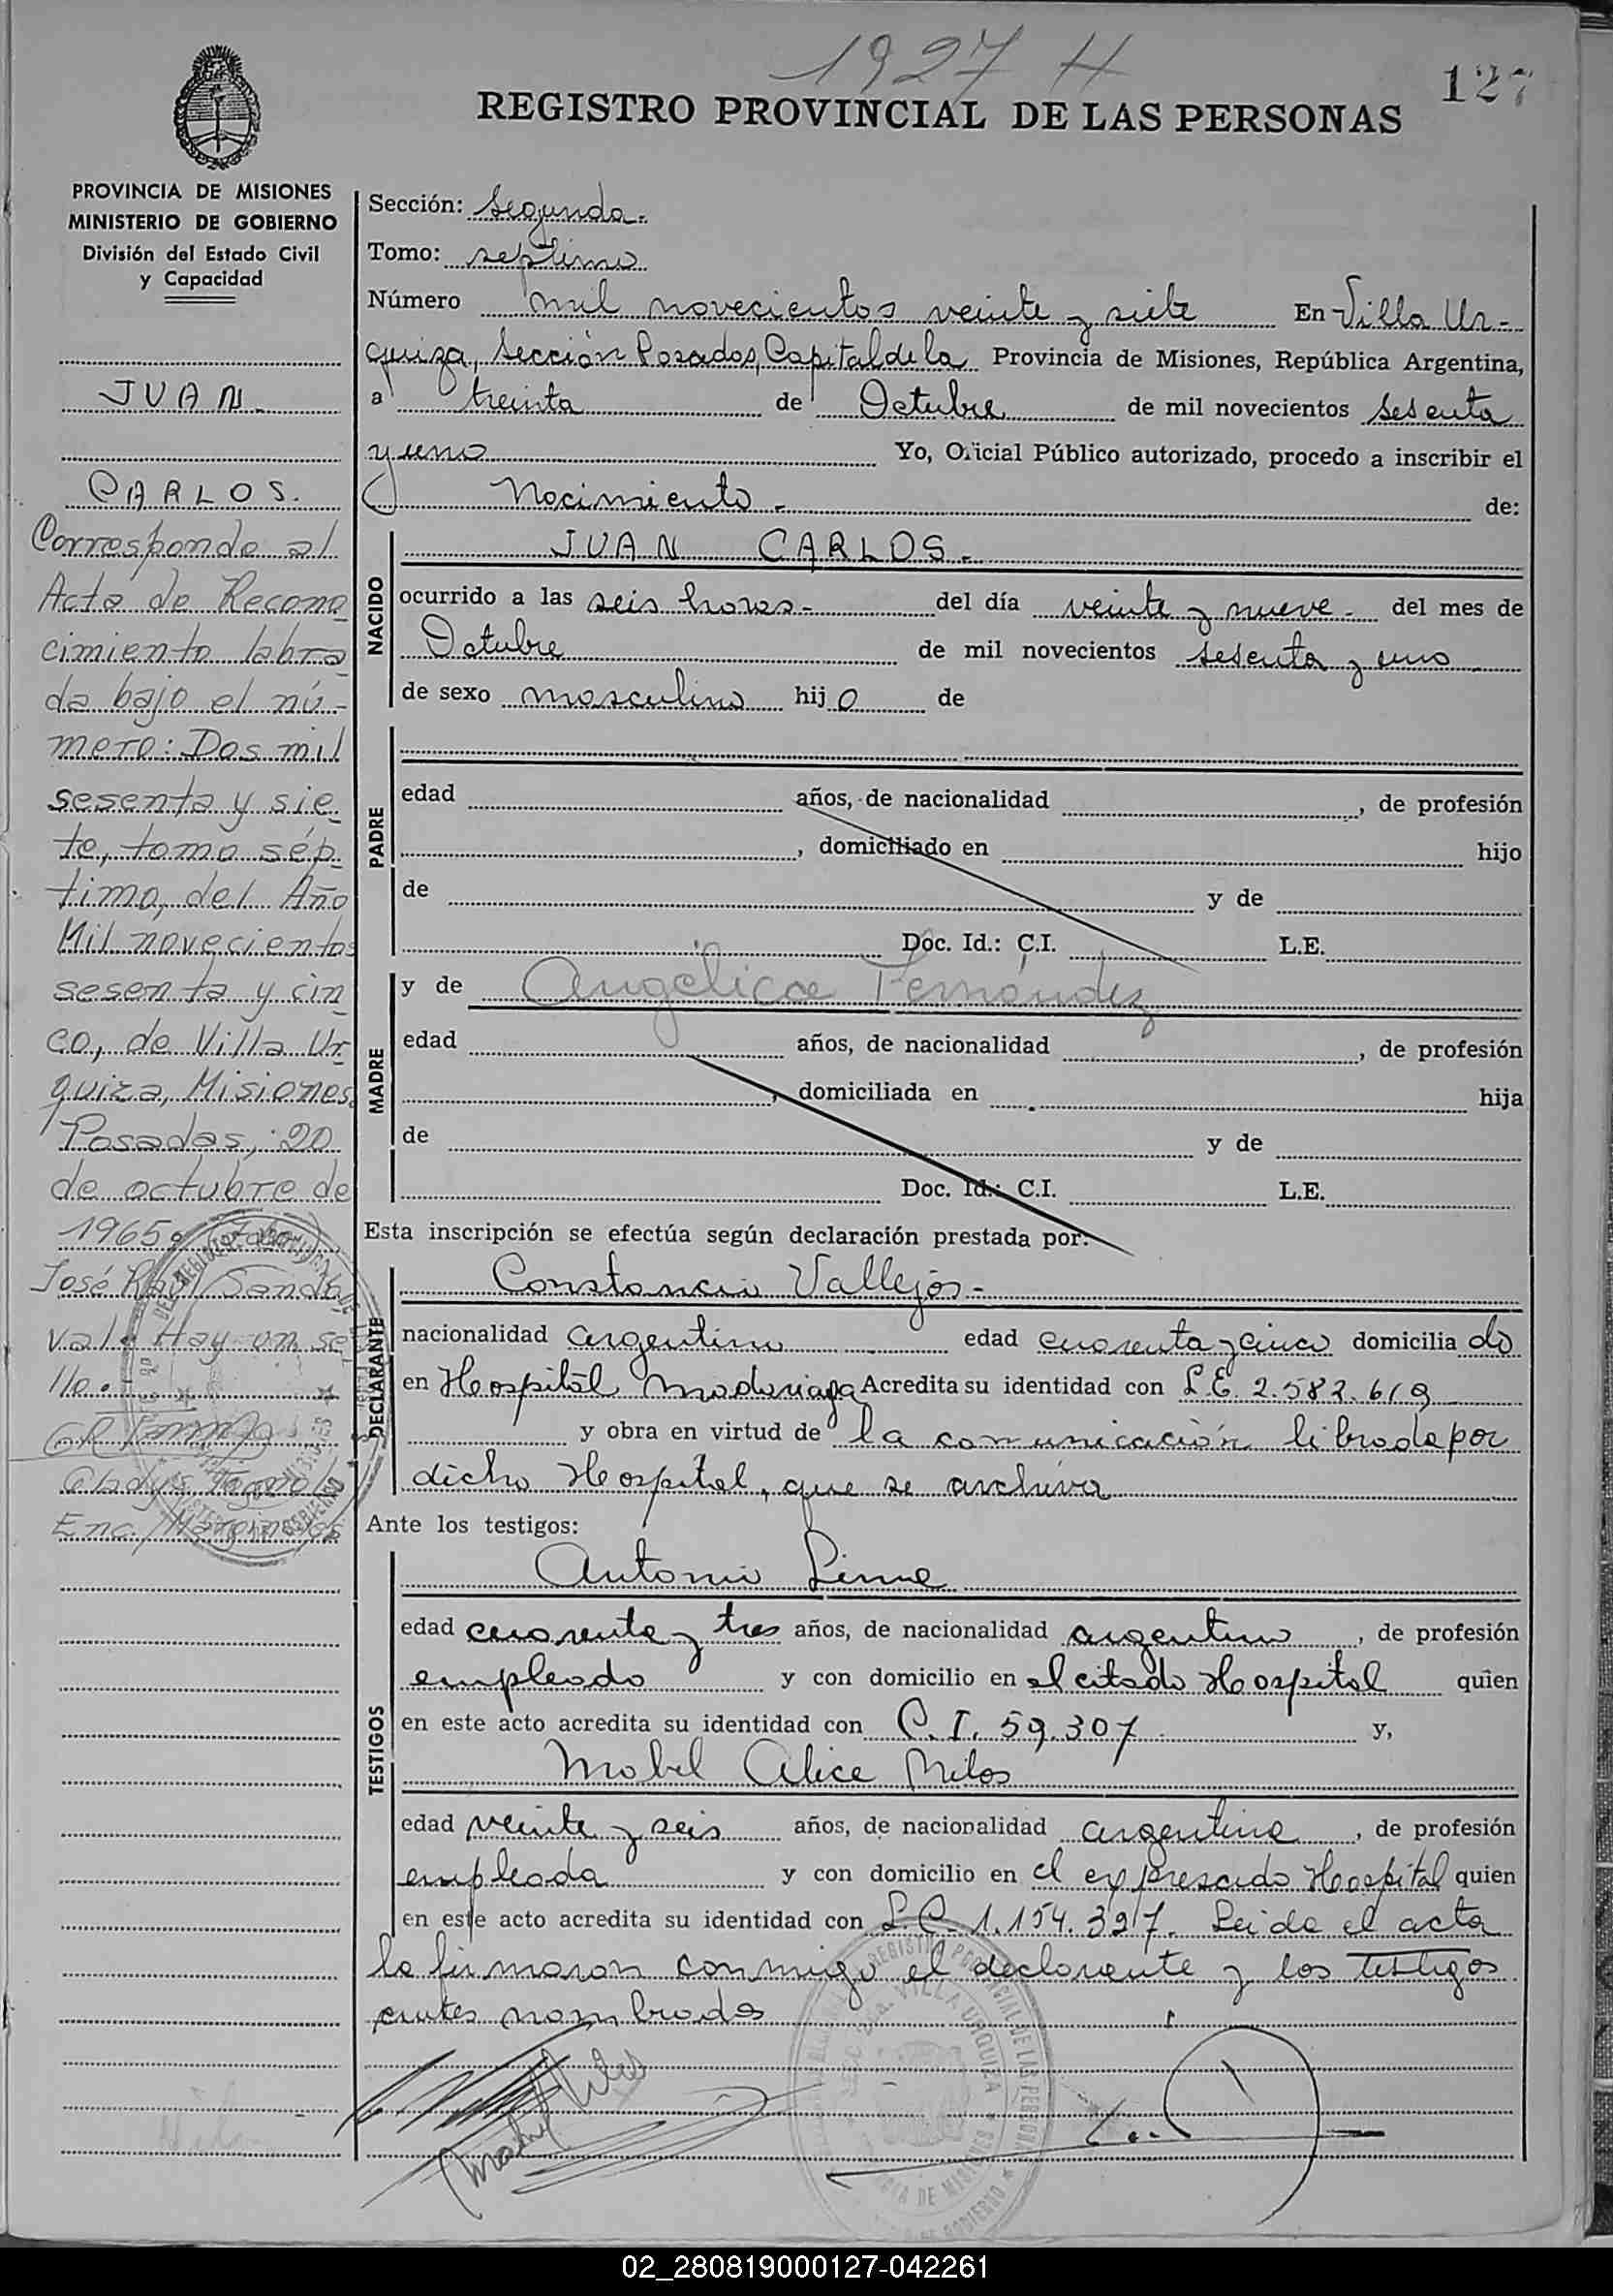 1927 H
127
REGISTRO PROVINCIAL DE LAS PERSONAS
PROVINCIA DE MISIONES
MINISTERIO DE GOBIERNO
División del Estado Civil
y Capacidad
JUAN.
CARLOS.
Corresponde al
Acta de Recono
cimiento labra
da bajo el nú-
mero: Dos mil
sesenta y sie
te, tomo sép
timo, del Año
Mil novecientos
sesenta y cin
co, de Villa Ur
quiza, Misiones.
Posadas, 20
de octubre de
1965.
José Raúl Sando
val. Hay un se
llo.
Gladys
Enc. Marginales
Sección: Segunda.
Tomo: septimo
Número mil novecientos veinte y siete En Villa Ur-
quiza, Sección Posadas, Capital de la Provincia de Misiones, República Argentina,
a treinta de Octubre de mil novecientos sesenta
y uno Yo, Oficial Público autorizado, procedo a inscribir el
Nacimiento.- de:
NACIDO
JUAN CARLOS.-
ocurrido a las seis horas.- del día veinte y nueve.- del mes de
Octubre de mil novecientos sesenta y uno
de sexo masculino hijo de
PADRE
edad años, de nacionalidad , de profesión
, domiciliado en hijo
de y de
Doc. Id.: C.I. L.E.
MADRE
y de Angélica Fernández
edad años, de nacionalidad , de profesión
, domiciliada en hija
de y de
Doc. Id.: C.I. L.E.
Esta inscripción se efectúa según declaración prestada por:
DECLARANTE
Constancio Vallejos.-
nacionalidad argentino edad cuarenta y cinco domiciliado
en Hospital Madariaga Acredita su identidad con L.E. 2.582.619
y obra en virtud de la comunicación librada por
dicho Hospital, que se archiva
Ante los testigos:
TESTIGOS
Antonio
edad cuarenta y tres años, de nacionalidad argentino, de profesión
empleado y con domicilio en el citado Hospital quien
en este acto acredita su identidad con C.I. 59.307 y,
Mabel Alice Milos
edad veinte y seis años, de nacionalidad argentina, de profesión
empleada y con domicilio en el expresado Hospital quien
en este acto acredita su identidad con L.C. 1.154.397. Leida el acta
la firmaron conmigo el declarante y los testigos
antes nombrados
02_280819000127-042261